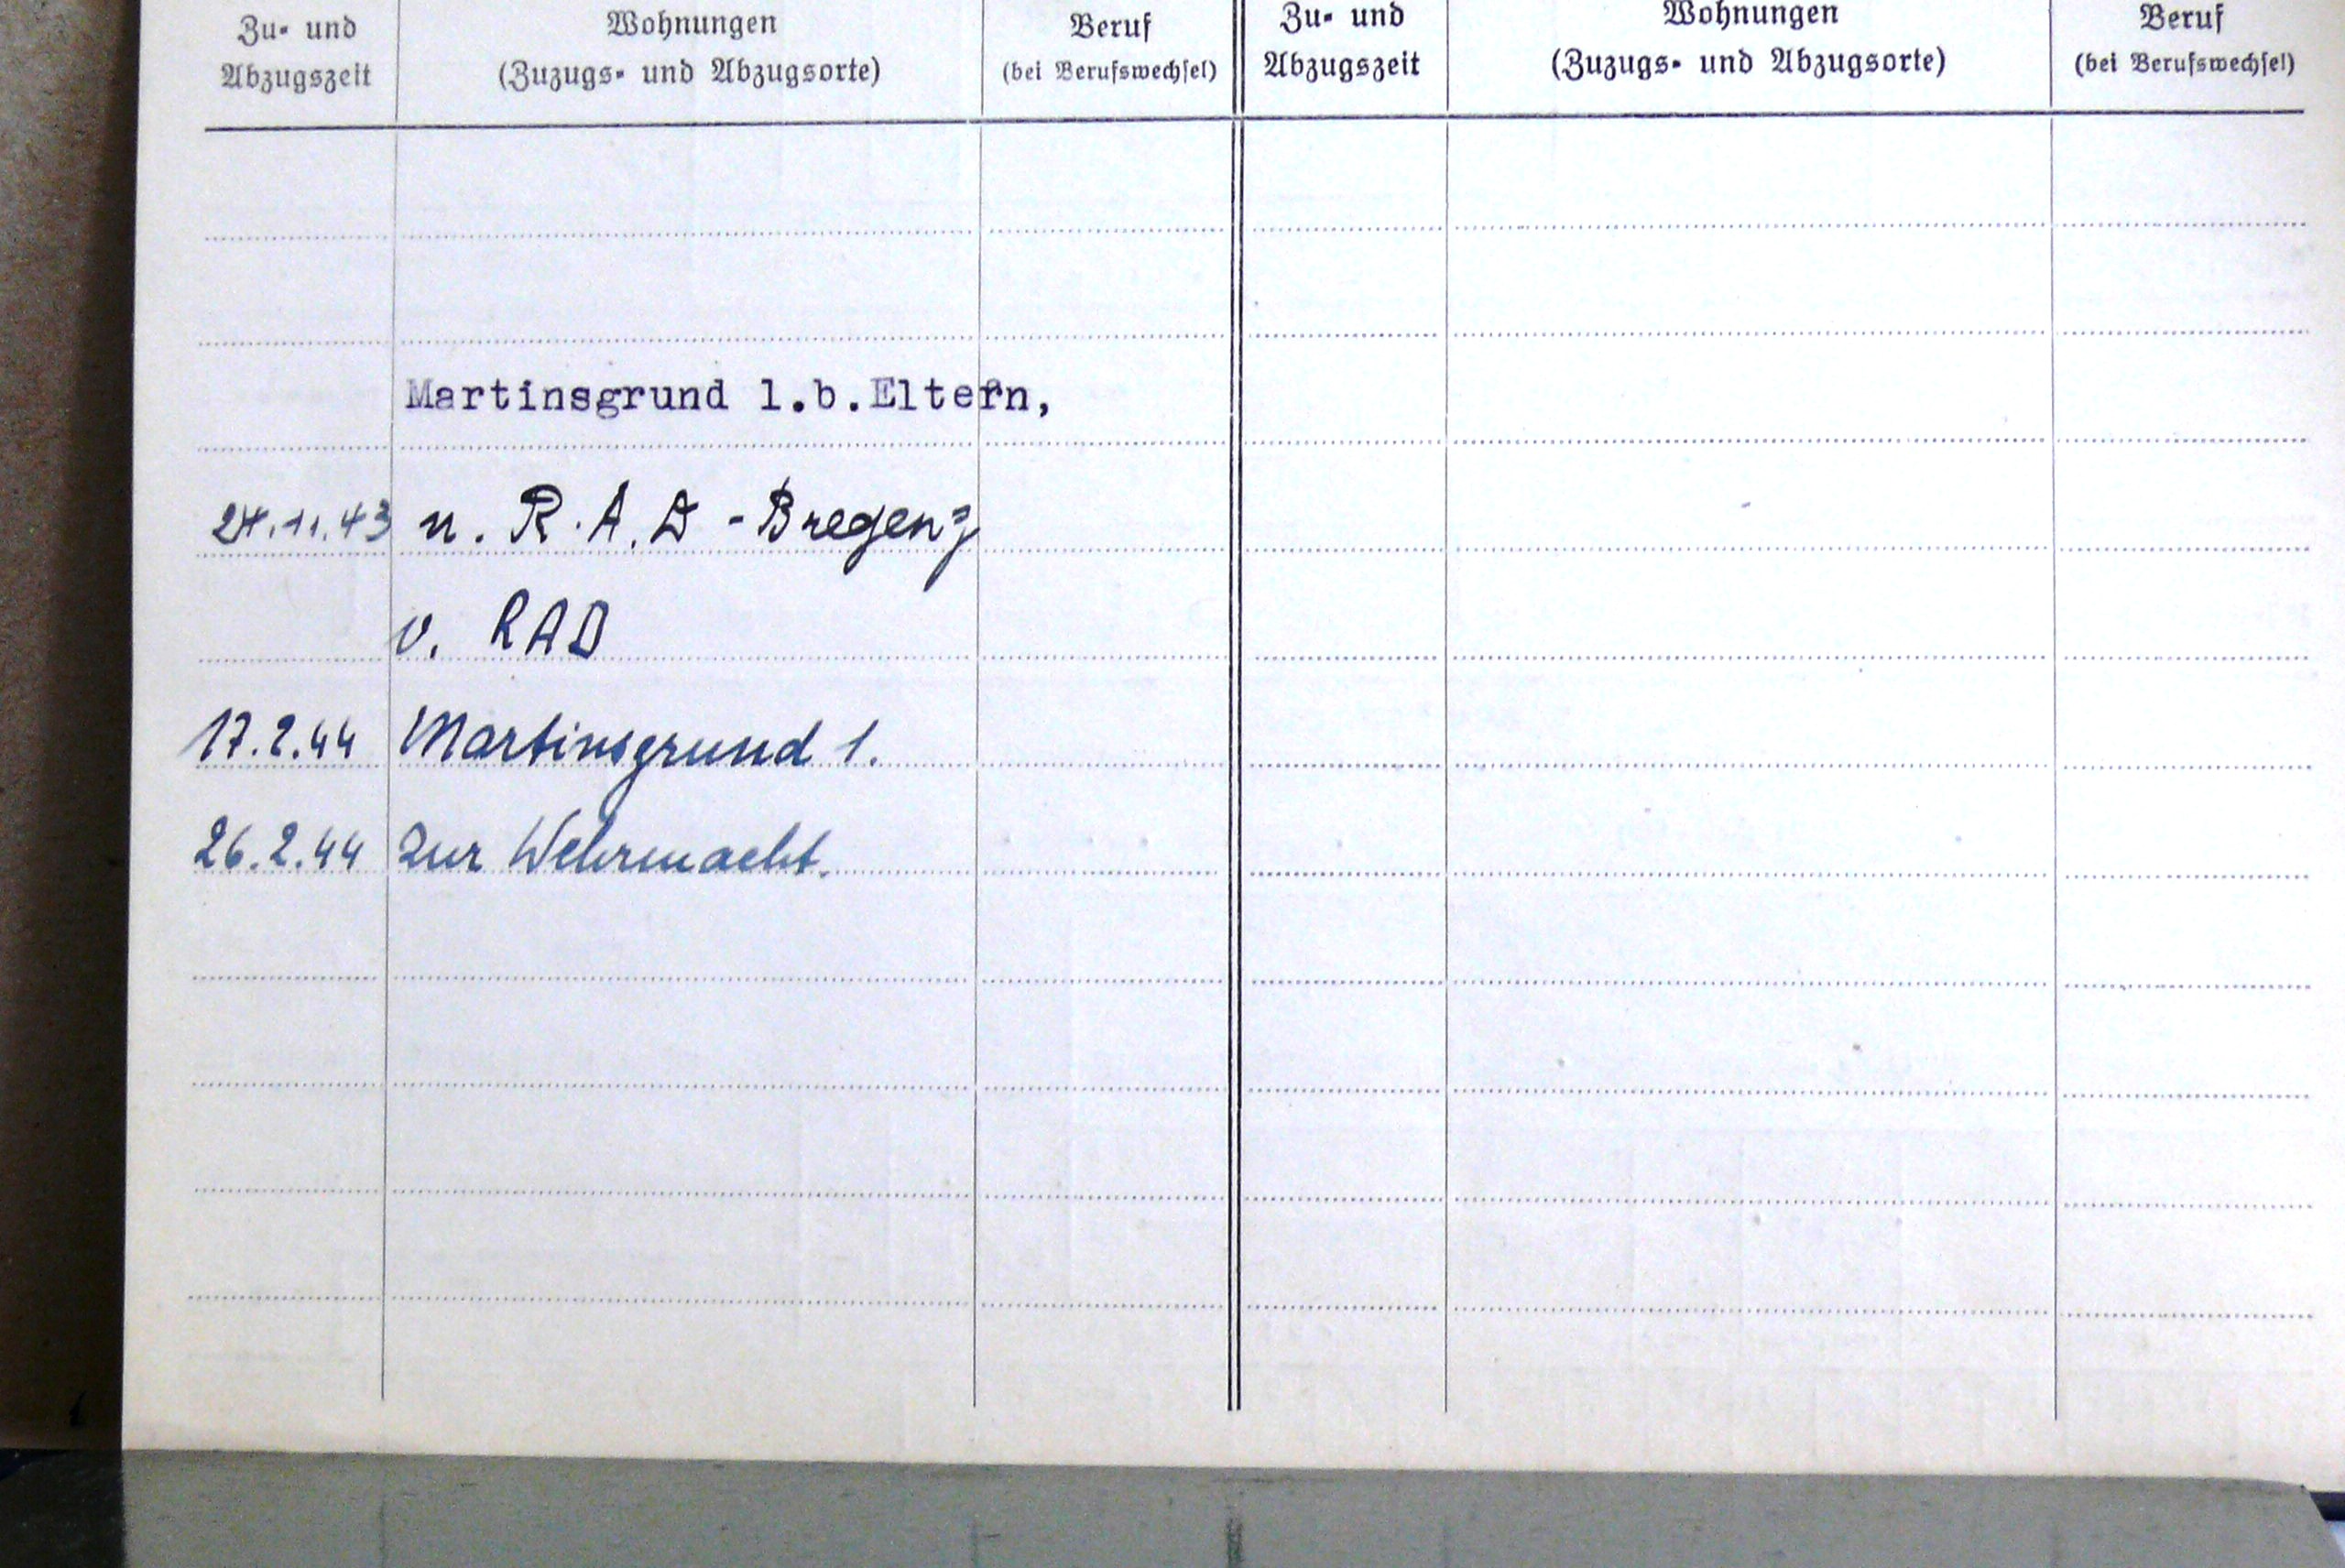 Zu- und Wohnungen Beruf Zu- und Wohnungen Beruf
Abzugszeit (Zuzugs- und Abzugsorte) (bei Berufswechsel) Abzugszeit (Zuzugs- und Abzugsorte) (bei Berufswechsel)
Martinsgrund 1.b.Eltern,
24.11.43 n. R.A.D - Bregenz
v. RAD
17.2.44 Martinsgrund 1.
26.2.44 zur Wehrmacht.